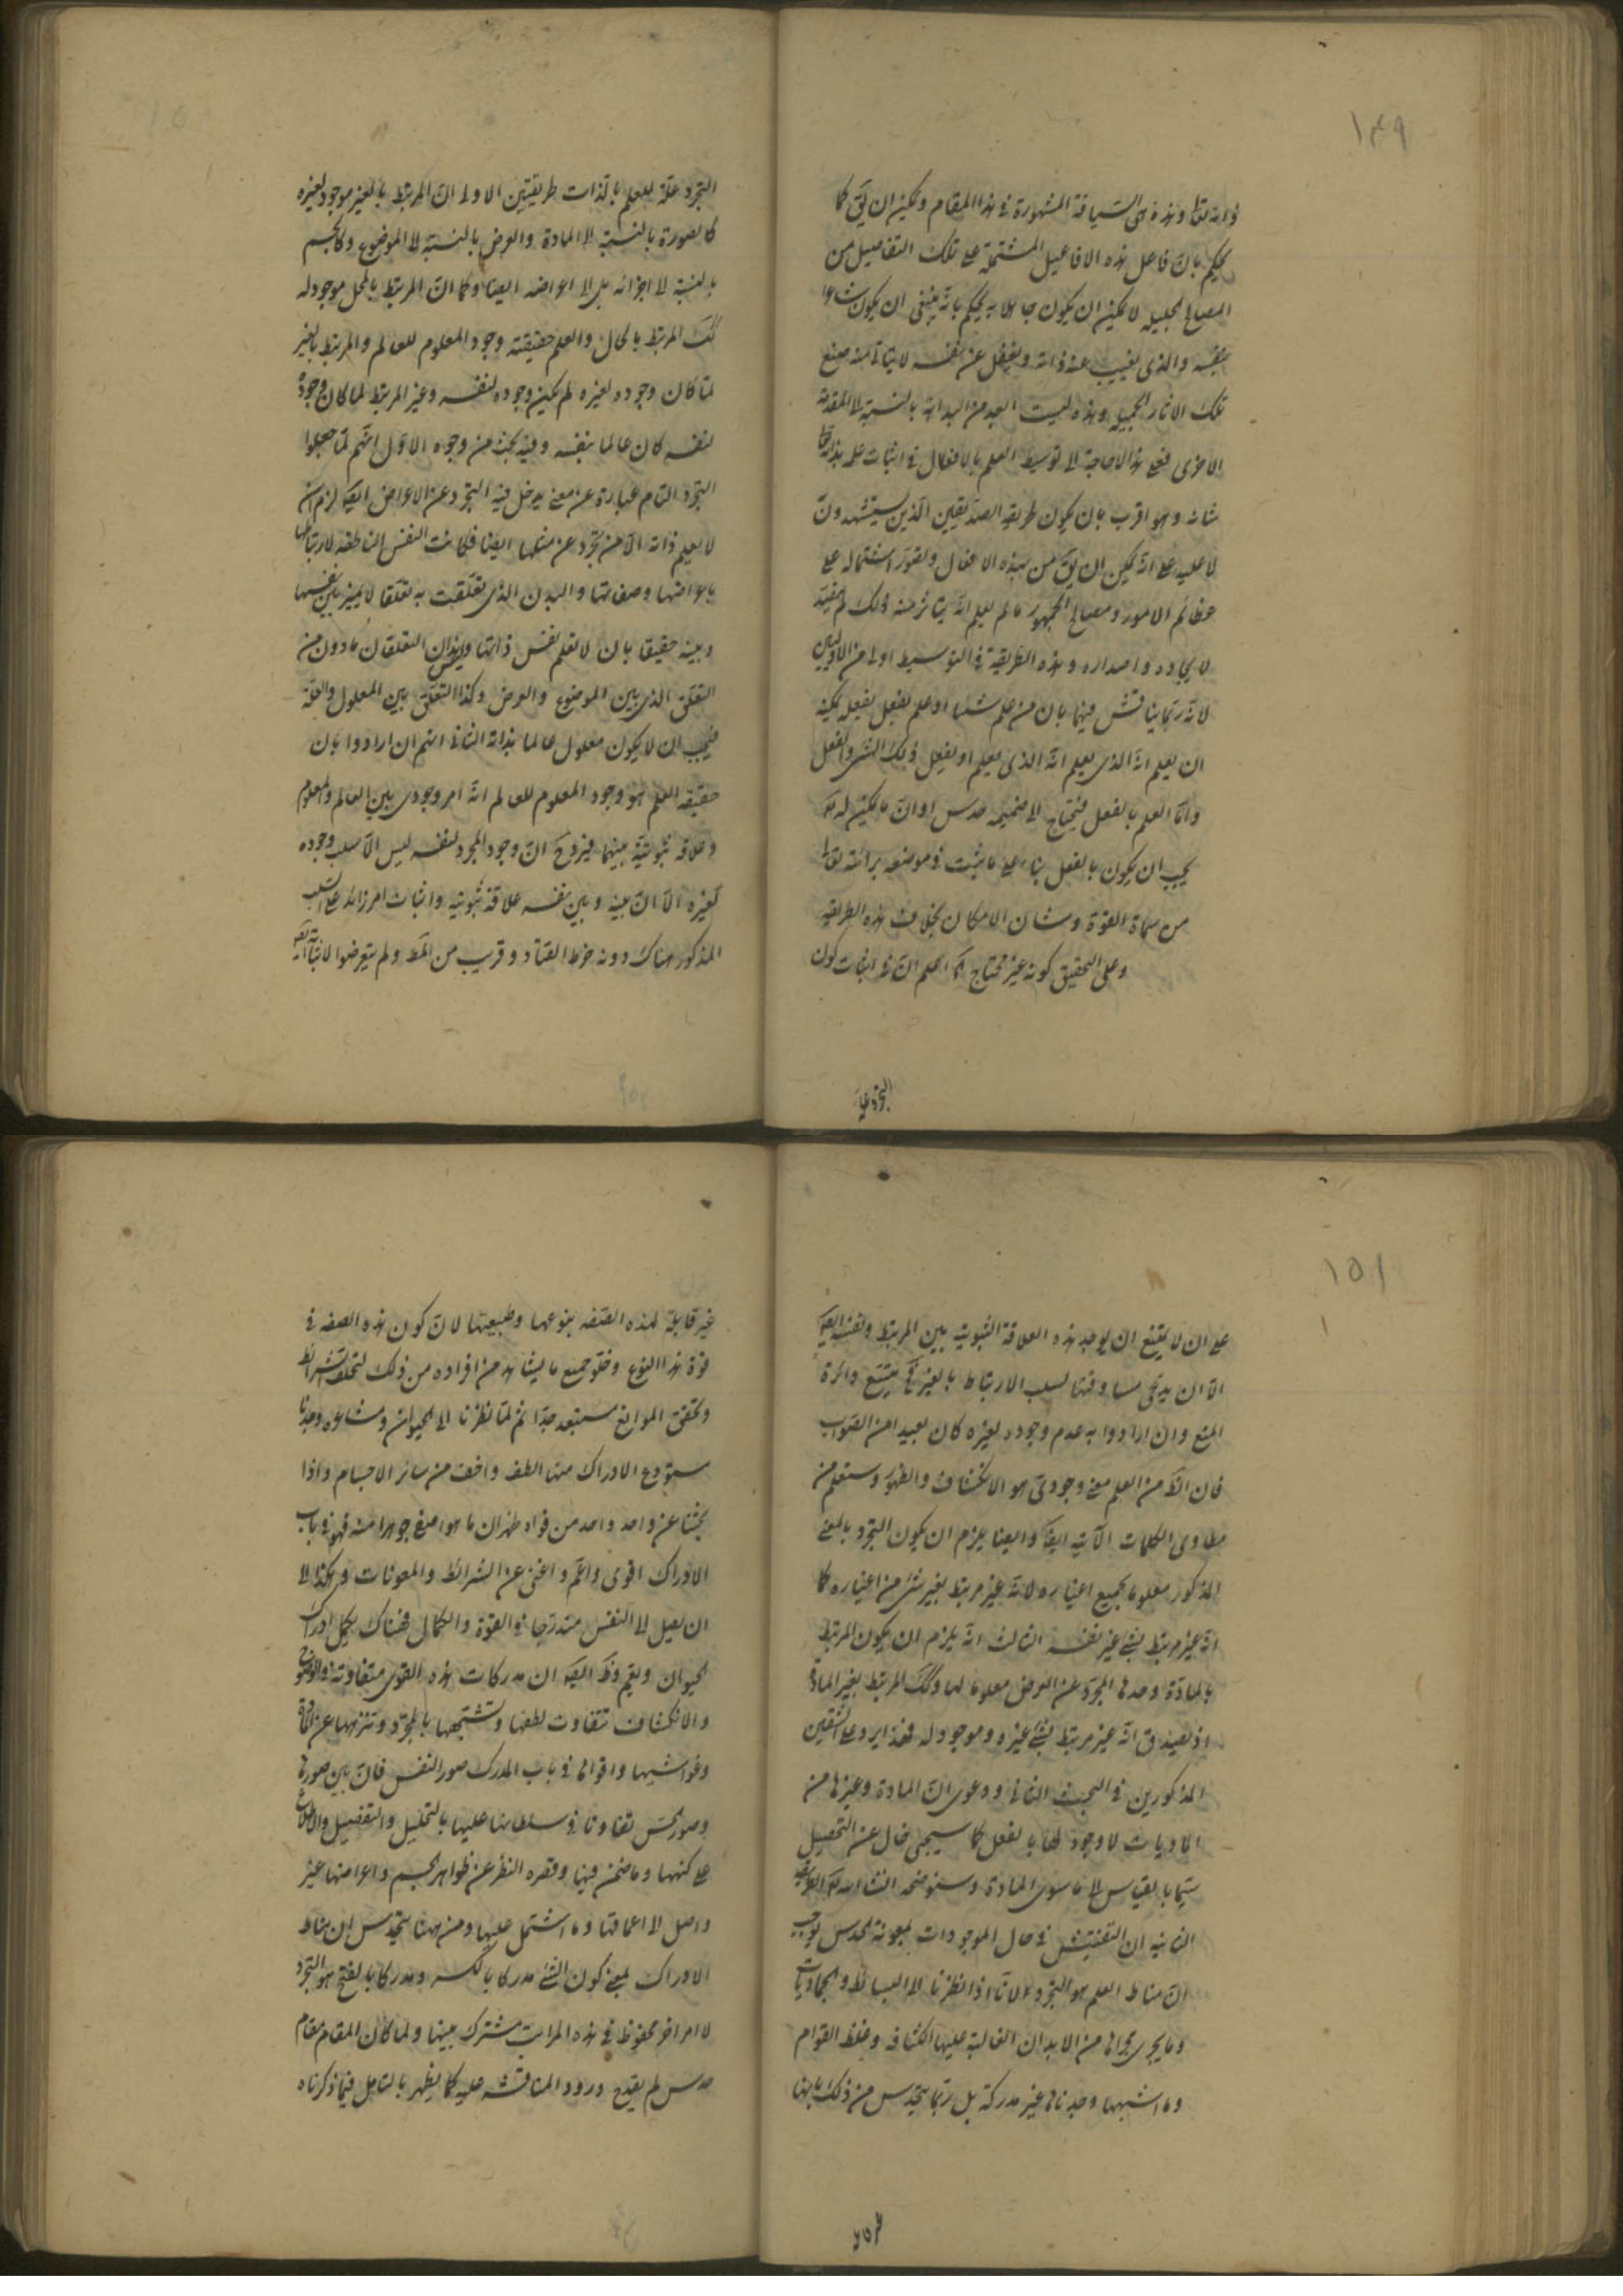 ١٤٩
ذاته تعالى وهذه هى السياقة المشهورة فى هذا المقام ويمكن ان يق كما
يحكم بان فاعل هذه الافاعيل المشتملة على تلك التفاصيل من
المصالح الجليلة لا يمكن ان يكون جاهلا به يحكم بانه ينبغى ان يكون شاعرا
بنفسه والذى يغيب عنه ذاته ويغفل عن نفسه لا يتاتى منه صنع
تلك الاثار الجميلة وهذه ليست ابعد من البداهة بالنسبة الى المقدمة
الاخرى فعلى هذا لا حاجة الى توسيط العلم بالافعال فى اثبات علمه بذاته تعالى
شانه وهو اقرب بان يكون طريقة الصديقين الذين يستشهدون
لا عليه على انه يمكن ان يق من بهذه الافعال وتصور اشتماله على
عظائم الامور ومصالح الجمهور ما لم يعلم انه يتاثر منه ذلك لم يفد
لايجاده واصداره وهذه الطريقة فى التوسيط اولى من الاوليين
لانه ربما يناقش فيها بان من علم شيئا او علم بفعل يفعله يمكنه
ان يعلم انه الذى يعلم انه الذى يعلم او يفعل ذلك الشى والفعل
واما العلم بالفعل فيحتاج الى ضميمة حدس او ان ما يمكن له تع
يجب ان يكون بالفعل بناء على ما يثبت فى موضعه برائته تعالى
من سماة القوة وشان الامكان بخلاف هذه الطريقة
وعلى التحقيق كونه غير محتاج اعلم ان فى اثبات كون
التجرد علة
التجرد علة للعلم بالذات طريقتين الاولى ان المرتبط بالغير موجود لغيره
كالصورة بالنسبة الى المادة والعرض بالنسبة الى الموضوع وكالجسم
بالنسبة الى اجزائه بل الى اعراضه ايضا وكما ان المرتبط بالمحل موجود له
كك المرتبط بالحال والعلم حقيقته وجود المعلوم للعالم والمرتبط بالغير
لما كان وجوده لغيره لم يكن وجوده لنفسه وغير المرتبط لما كان وجوده
لنفسه كان عالما بنفسه وفيه بحث من وجوه الاول انهم لما جعلوا
التجرد التام عبارة عن معنى يدخل فيه التجرد عن الاعراض ايضا لزم ان
لا يعلم ذاته الا من تجرد عن مثلها ايضا فكانت النفس الناطقة لارتباطها
باعراضها وصفاتها والبدن الذى تعلقت به تعلقا لا يميز بين نفسها
وبينه حقيقا بان لا تعلم نفس ذاتها وليس هذان التعلقان مادون من
التعلق الذى بين الموضوع والعرض وكذا التعلق بين المعلول والعلة
فيجب ان لا يكون معلول عالما بذاته الثانى انهم ان ارادوا بان
حقيقة العلم هو وجود المعلوم للعالم انه امر وجودى بين العالم والمعلوم
وعلاقة ثبوتية بينهما فيرد ح ان وجود المجرد لنفسه ليس الا سلب وجوده
لغيره لا ان بينه وبين نفسه علاقة ثبوتية واثبات امر زائد على السلب
المذكور هناك دونه خرط القتاد وقريب من المط ولم يتعرضوا لاثباته
١٥١
على ان لا يمتنع ان يوجد هذه العلاقة الثبوتية بين المرتبط ونفسه ايضا
الا ان يدعى مساوقتها لسلب الارتباط بالغير فح يتسع دائرة
المنع وان ارادوا به عدم وجوده لغيره كان بعيدا من الصواب
فان الظ من العلم معنى وجودى هو الانكشاف والظهور وستعلم من
مطاوى الكلمات الآتية ايضا وايضا يلزم ان يكون التجرد بالمعنى
المذكور معلوما لجميع اغياره لانه غير مرتبط بغير شى من اغياره كما
انه غير مرتبط بشى غير نفسه الثالث انه يلزم ان يكون المرتبط
بالمادة وحدها المجرد عن العرض معلوما لها وكك المرتبط بغير المادة
اذ يصدق انه غير مرتبط بشى غيره وموجود له فهذا يرد على الشقين
المذكورين فى البحث الثانى ودعوى ان المادة وغيرها من
الماديات لا وجود لها بالفعل كما سيجى خال عن التحصيل
سيما بالقياس الى ما سوى المادة وسنوضحه انشاء الله تعالى الطريقة
الثانية ان التفتيش فى حال الموجودات بمعونة الحدس يوجب
ان مناط العلم هو التجرد لانا اذا نظرنا الى البسائط والجماديات
وما يجرى مجراها من الابدان الغالبة عليها الكثافة وغلظ القوام
وما اشبهها وجدناها غير مدركة بل ربما يتحدس من ذلك بانها
غير قابلة لهذه الصفة بنوعها وطبيعتها لان كون هذه الصفة فى
قوة هذا النوع وخلو جميع ما يشاهد من افراده من ذلك لتخلف شرائط
وتحقق الموانع مستبعد جدا ثم لما نظرنا الى الحيوان ومشاعره وجدنا
مستودع الادراك منها الطف واخف من سائر الاجسام واذا
بحثنا عن واحد واحد من قواه ظهر ان ما هو اصفى جوهرا منه فهو فى باب
الادراك اقوى واتم واغنى عن الشرائط والمعونات وهكذا الى
ان يصل الى النفس متدرجا فى القوة والكمال فهناك يكمل ادراك
الحيوان ويتم وظ ايضا ان مدركات هذه القوى متفاوتة فى الوضوح
والانكشاف بتفاوت لطفها وتشبهها بالمجرد وتنزهها عن المادة
وغواشيها واقواها فى باب المدرك صور النفس فان بين صورها
وصور الحس تفاوتا فى سلطانها عليها بالتحليل والتفصيل والاطلاع
على كنهها وما ضمن فيها وقصره النظر عن ظواهر الجسم واعراضها غير
واصل الى اعماقها وما اشتمل عليها ومن ههنا يتحدس ان مناط
الادراك بمعنى كون الشى مدركا بالكسر ومدركا بالفتح هو التجرد
لا امر اخر محفوظ فى هذه المراتب مشترك بينها ولما كان المقام مقام
حدس لم يقدح ورود المناقشة عليه كما يظهر بالتامل فيما ذكرناه